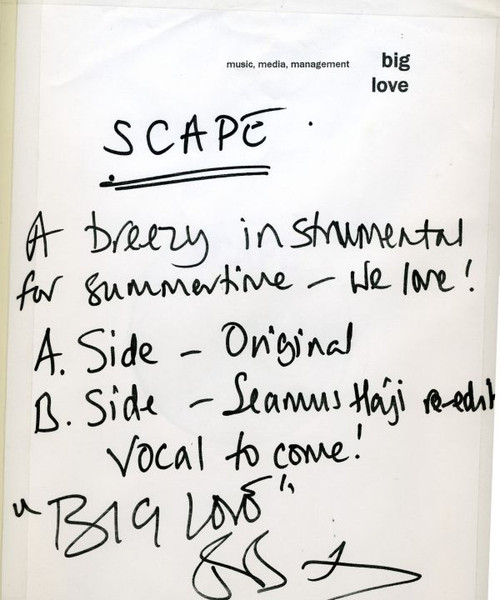 music, media, management
big
love
SCAPE
A breezy instrumental
for summertime – we love!
A. Side – Original
B. Side – Seamus Haji re-edit
Vocal to come!
"BIG LOVE"